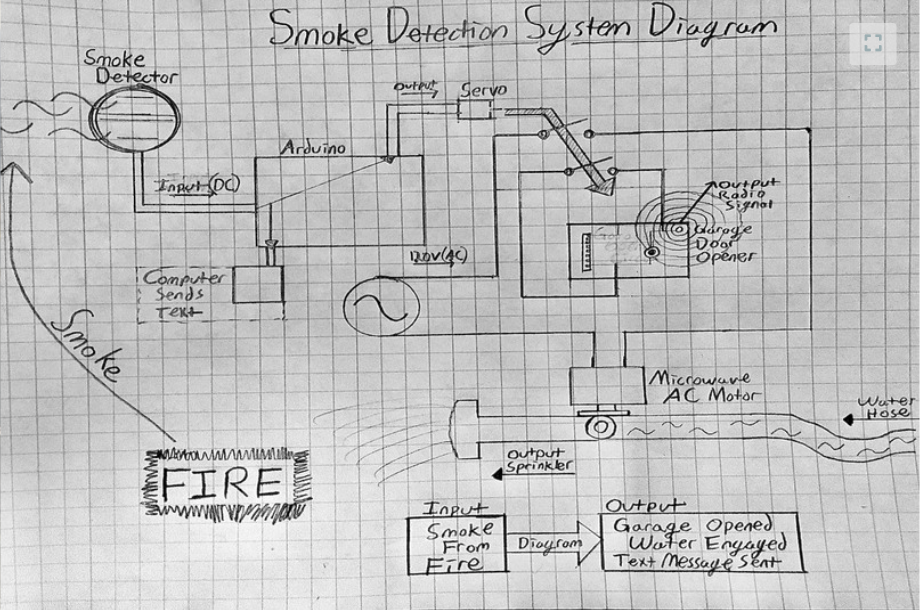 Smoke Detection System Diagram
Smoke
Detector
Output
Servo
Arduino
Input (DC)
Output
Radio
Signal
Garage
Door
Opener
120V(AC)
Computer
Sends
Text
Smoke
Microwave
AC Motor
Water
Hose
Output
Sprinkler
FIRE
Input
Smoke
From
Fire
Diagram
Output
Garage Opened
Water Engaged
Text Message Sent